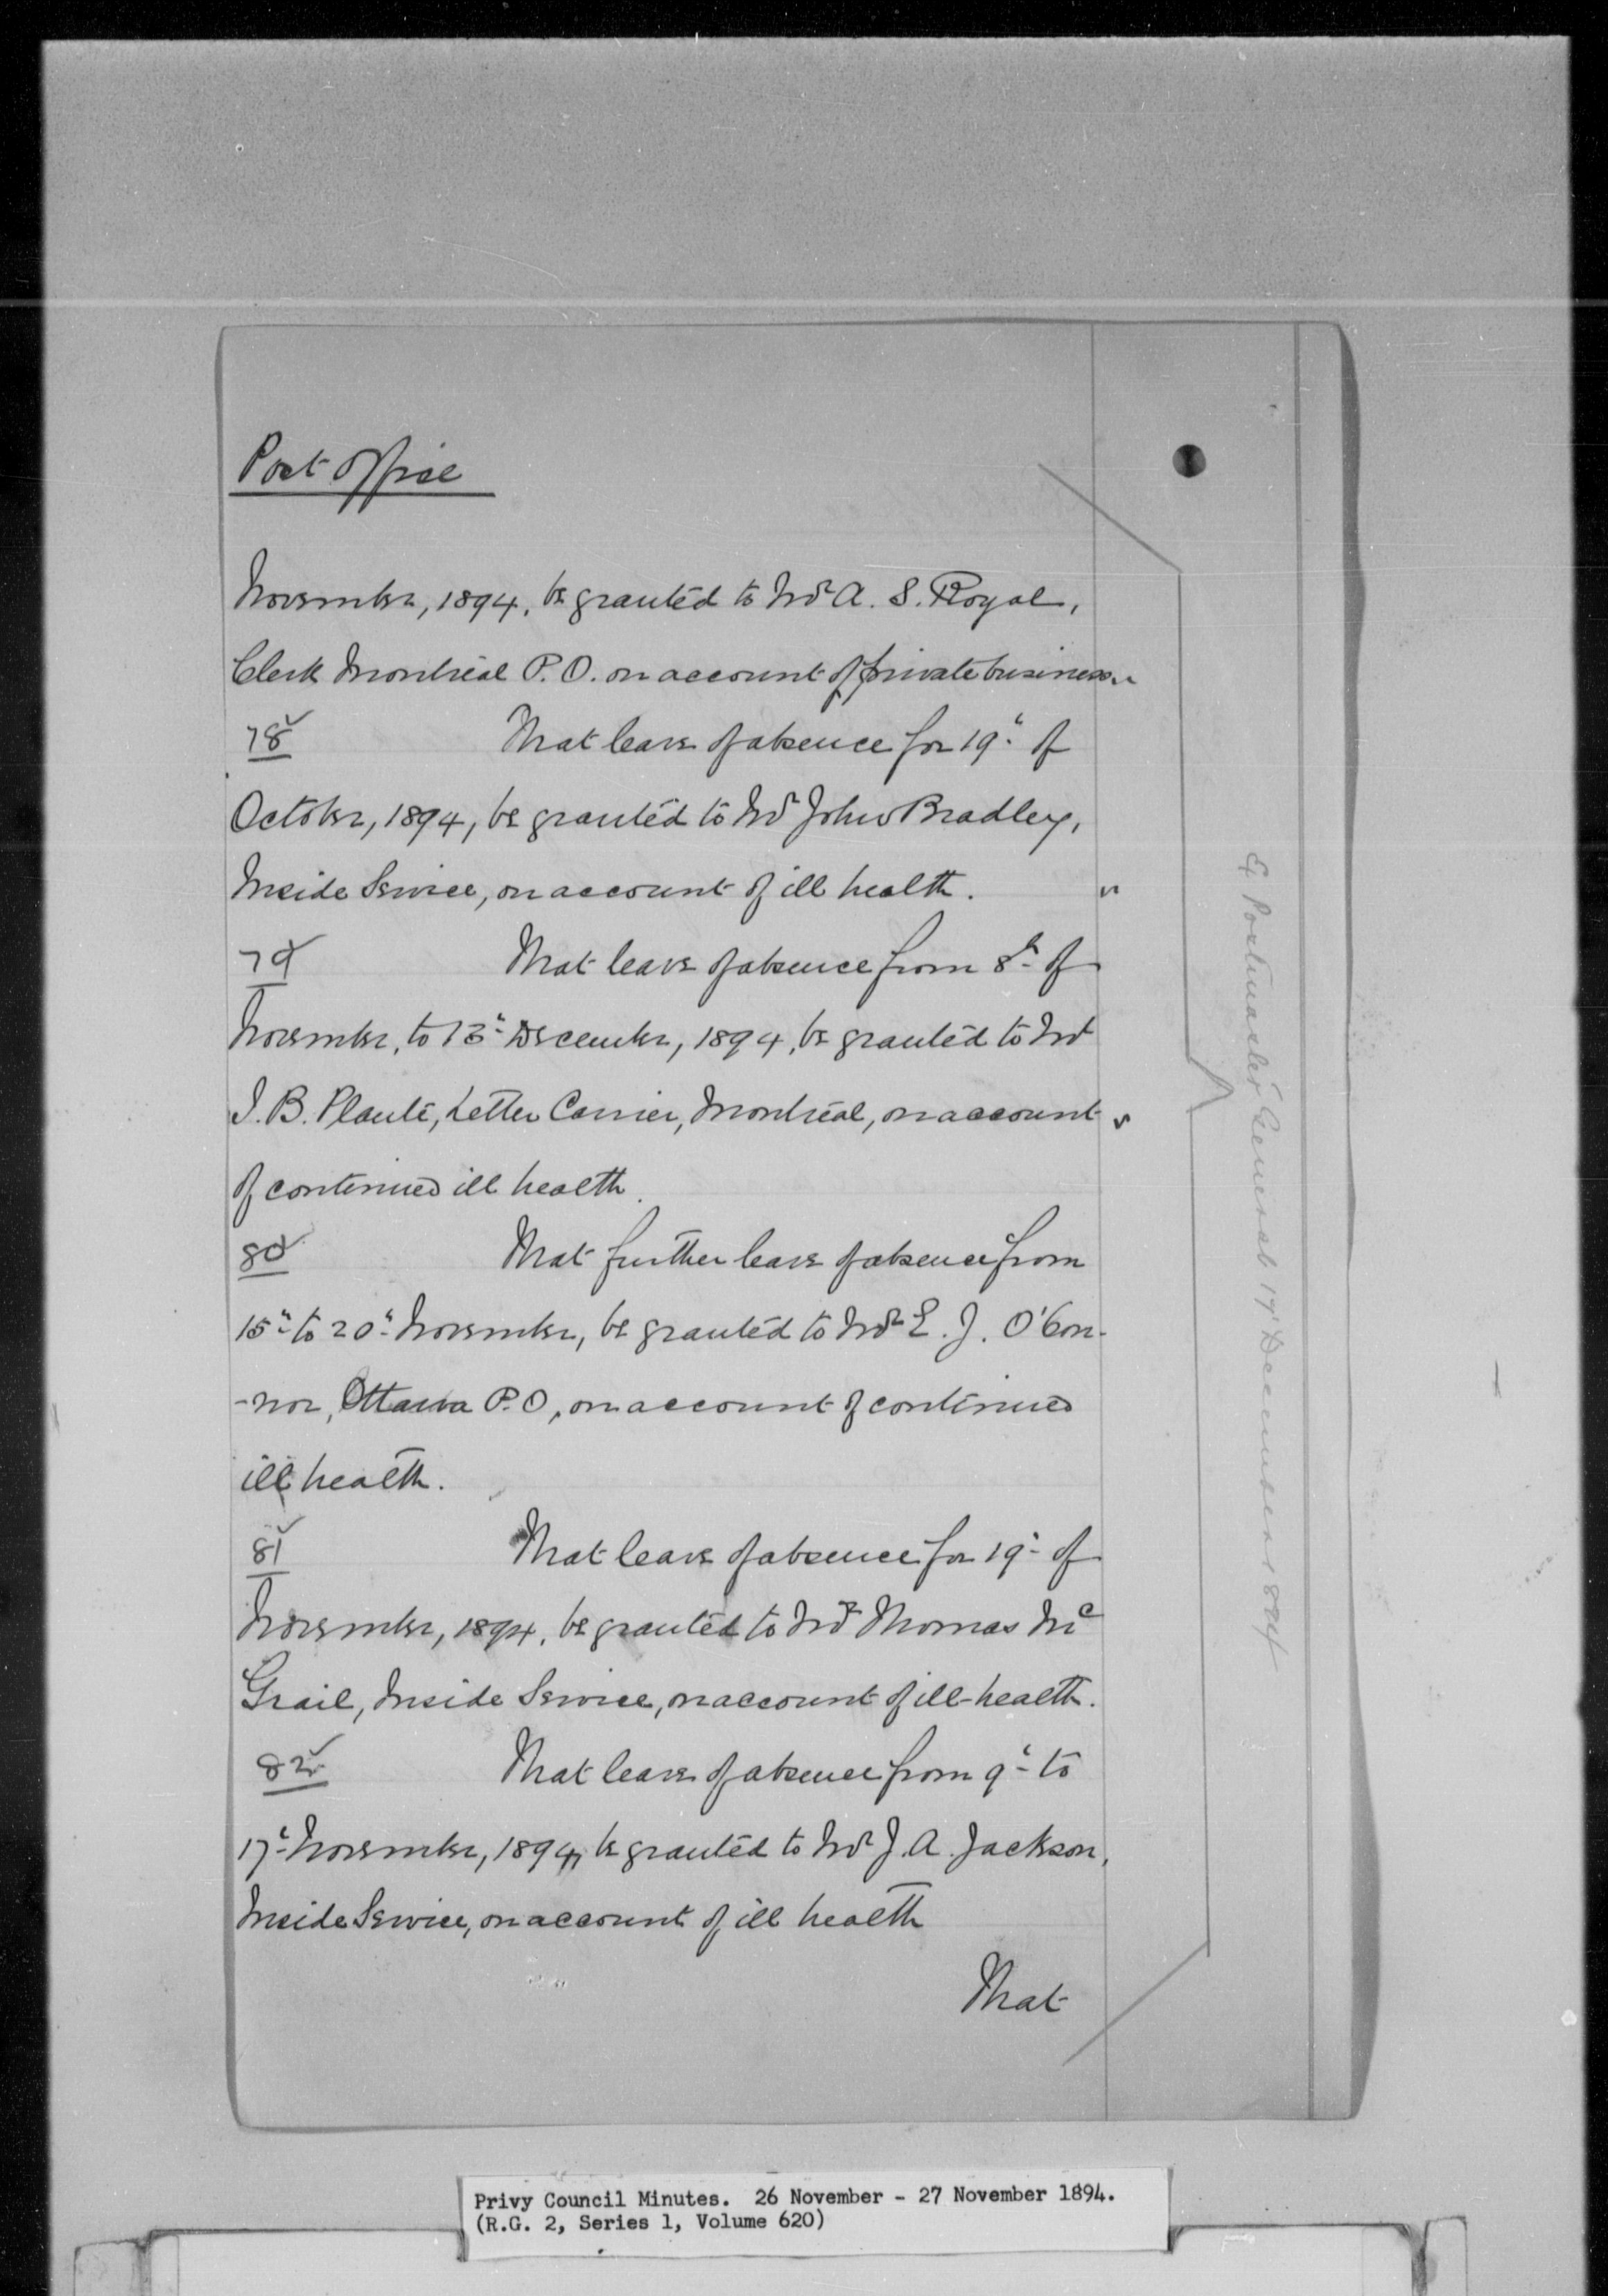 Post Office
November, 1894, be granted to Mr A. S. Royal,
Clerk Montreal P.O. on account of private business.
78
That leave of absence for 19th of
October, 1894, be granted to Mr John Bradley,
Inside Service, on account of ill health.
79
That leave of absence from 8th of
November, to 13th December, 1894, be granted to Mr
J. B. Planté, Letter Carrier, Montreal, on account
of continued ill health.
80
That further leave of absence from
15th to 20th November, be granted to Mr E. J. O'Con-
-nor, Ottawa P.O, on account of continued
ill health.
81
That leave of absence for 19th of
November, 1894, be granted to Mr Thomas Mc
Grail, Inside Service, on account of ill-health.
82
That leave of absence from 9th to
17th November, 1894, be granted to Mr J. A. Jackson,
Inside Service, on account of ill health
That
Postmaster General 17 December 1894
Privy Council Minutes. 26 November - 27 November 1894.
(R.G. 2, Series 1, Volume 620)